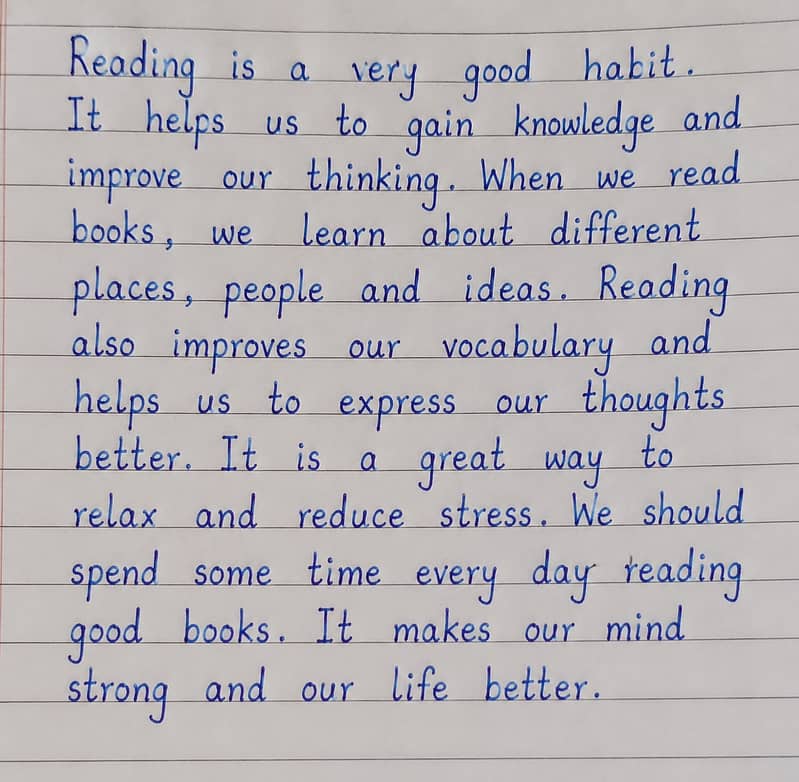 Reading is a very good habit.
It helps us to gain knowledge and
improve our thinking. When we read
books, we learn about different
places, people and ideas. Reading
also improves our vocabulary and
helps us to express our thoughts
better. It is a great way to
relax and reduce stress. We should
spend some time every day reading
good books. It makes our mind
strong and our life better.